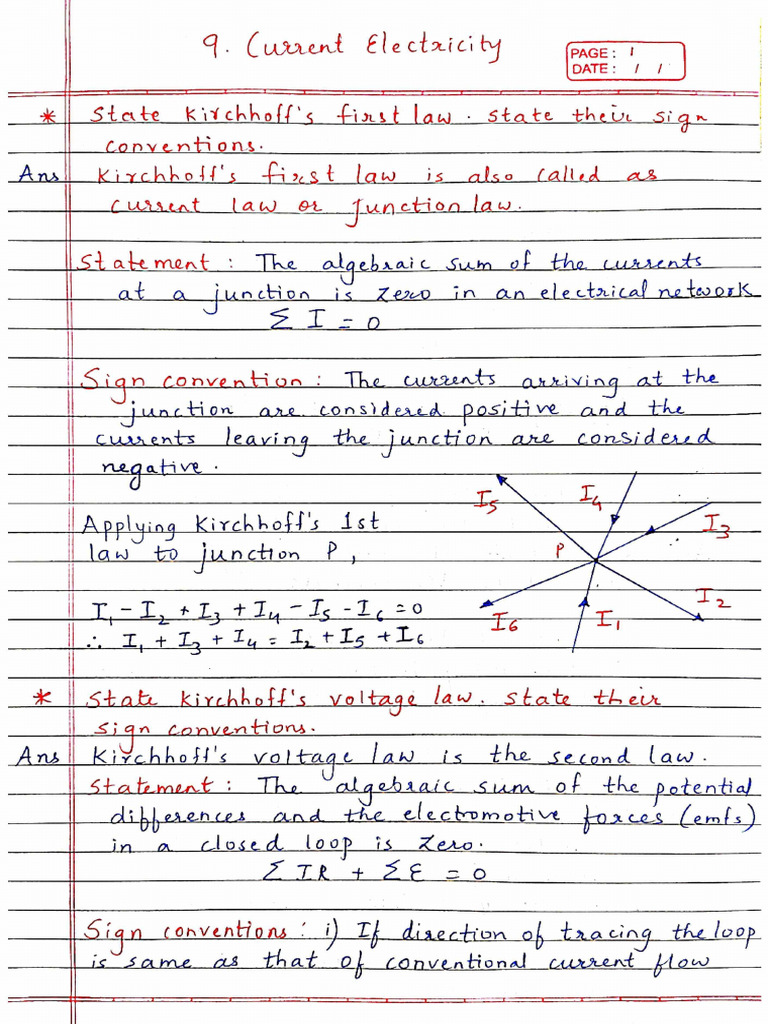 9. Current Electricity
PAGE : 1
DATE : / /
* State Kirchhoff's first law. state their sign
conventions.
Ans Kirchhoff's first law is also called as
current law or junction law.
Statement : The algebraic sum of the currents
at a junction is zero in an electrical network
Σ I = 0
Sign convention : The currents arriving at the
junction are considered positive and the
currents leaving the junction are considered
negative.
Applying Kirchhoff's 1st
law to junction P,
I₁ - I₂ + I₃ + I₄ - I₅ - I₆ = 0
∴ I₁ + I₃ + I₄ = I₂ + I₅ + I₆
I₅
I₄
I₃
P
I₂
I₆
I₁
* State Kirchhoff's voltage law. state their
sign conventions.
Ans Kirchhoff's voltage law is the second law.
Statement : The algebraic sum of the potential
differences and the electomotive forces (emfs)
in a closed loop is zero.
Σ IR + Σ ε = 0
Sign conventions : i) If direction of tracing the loop
is same as that of conventional current flow